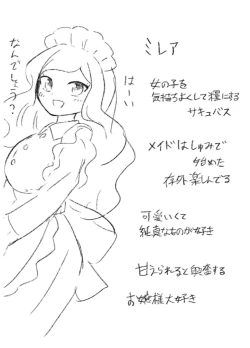 ミレア
はーい
なんでしょう？
女の子を
気持ちよくして糧にする
サキュバス
メイドはしゅみで
始めた
存外楽しんでる
可愛いくて
純真なものが好き
甘えられると興奮する
お嬢様大好き